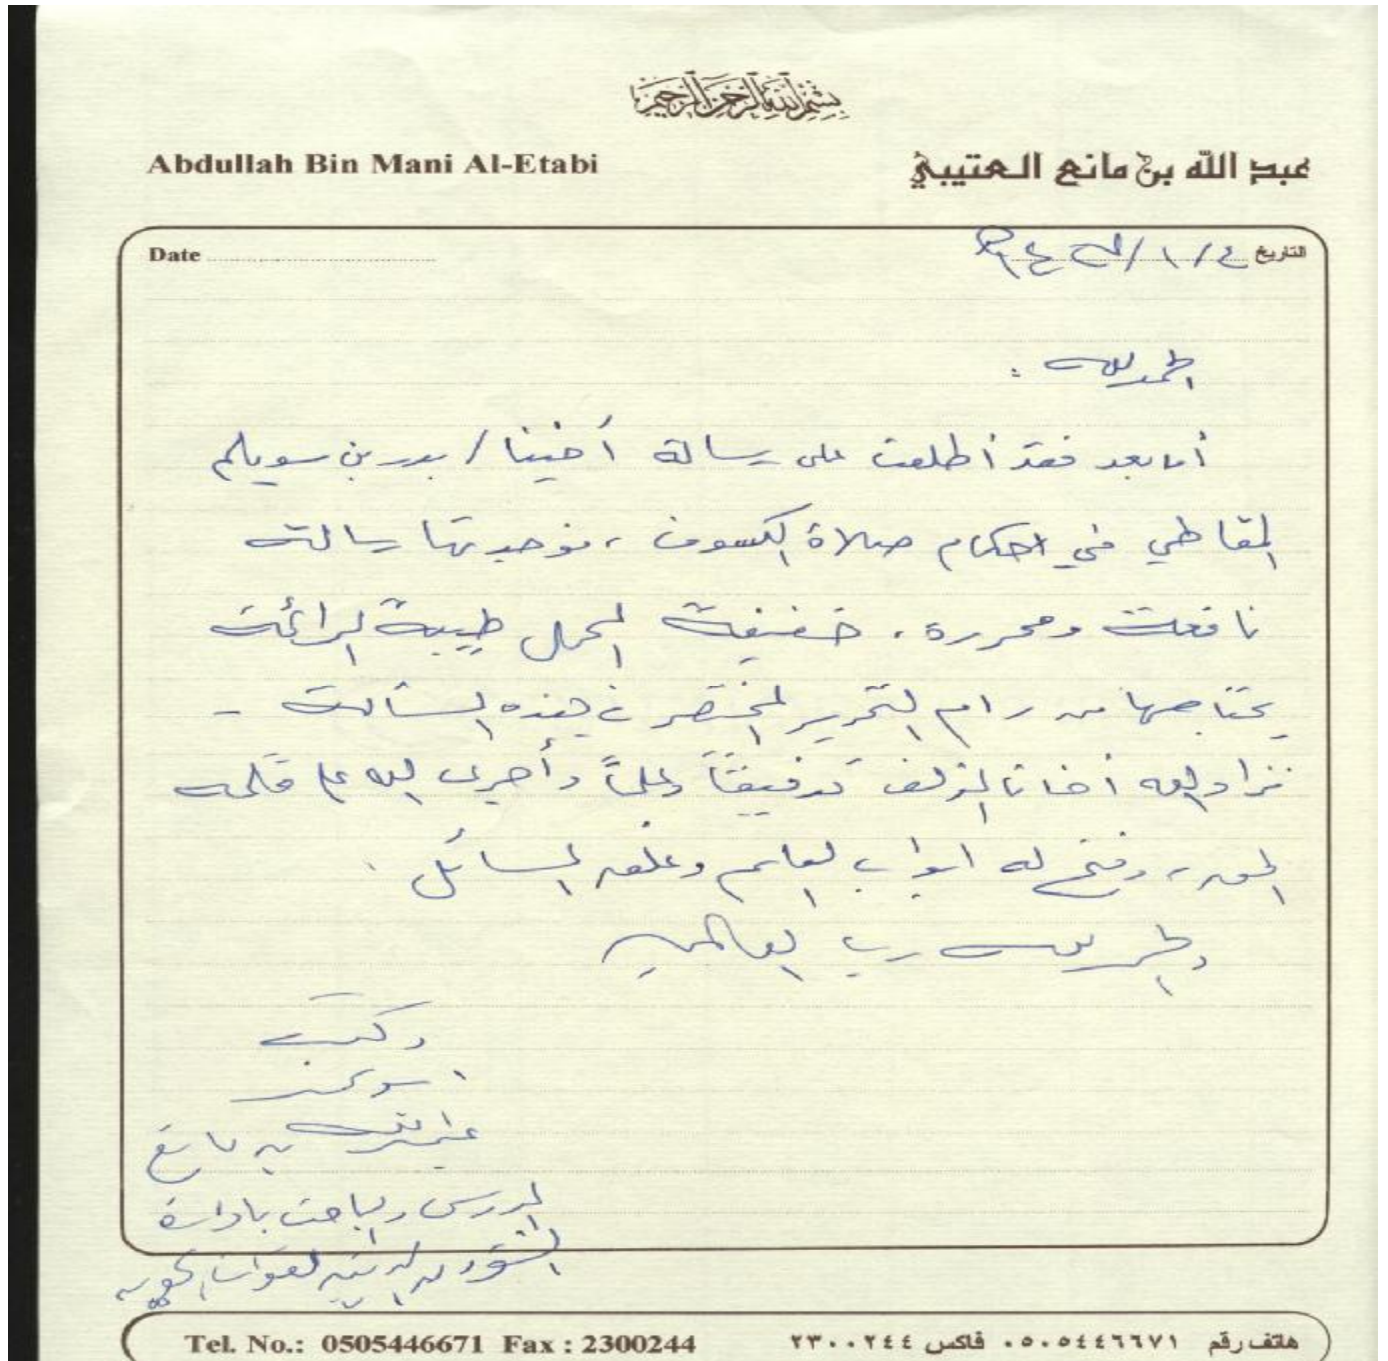 بسم الله الرحمن الرحيم
Abdullah Bin Mani Al-Etabi
عبد الله بن مانع العتيبي
Date
التاريخ
الحمد لله :
أما بعد فقد أطلعت على رسالة أخينا / بدر بن سويلم
المقاطي في احكام صلاة الكسوف ، فوجدتها رسالة
نافعة ومحررة ، خفيفة المحمل طيبة الرائحة
يحتاجها من رام التحرير المختصر في هذه المسألة -
فزاد الله أخانا المؤلف توفيقاً وعلماً وأجرى الله على قلمه
الحق ، وفتح له ابواب العلم وغلق المسائل .
والحمد لله رب العالمين
وكتب
عبدالله بن مانع
المدرس والباحث بادارة
الشؤون الدينية للقوات الجوية
Tel. No.: 0505446671 Fax : 2300244
هاتف رقم ٠٥٠٥٤٤٦٦٧١ فاكس ٢٣٠٠٢٤٤